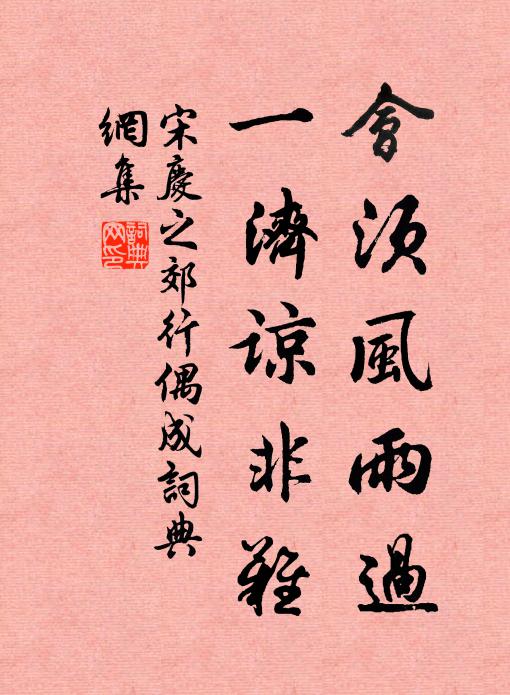 會須風雨過
一濟諒非難
宋慶之郊行偶成詞典
網集
詞典
网印